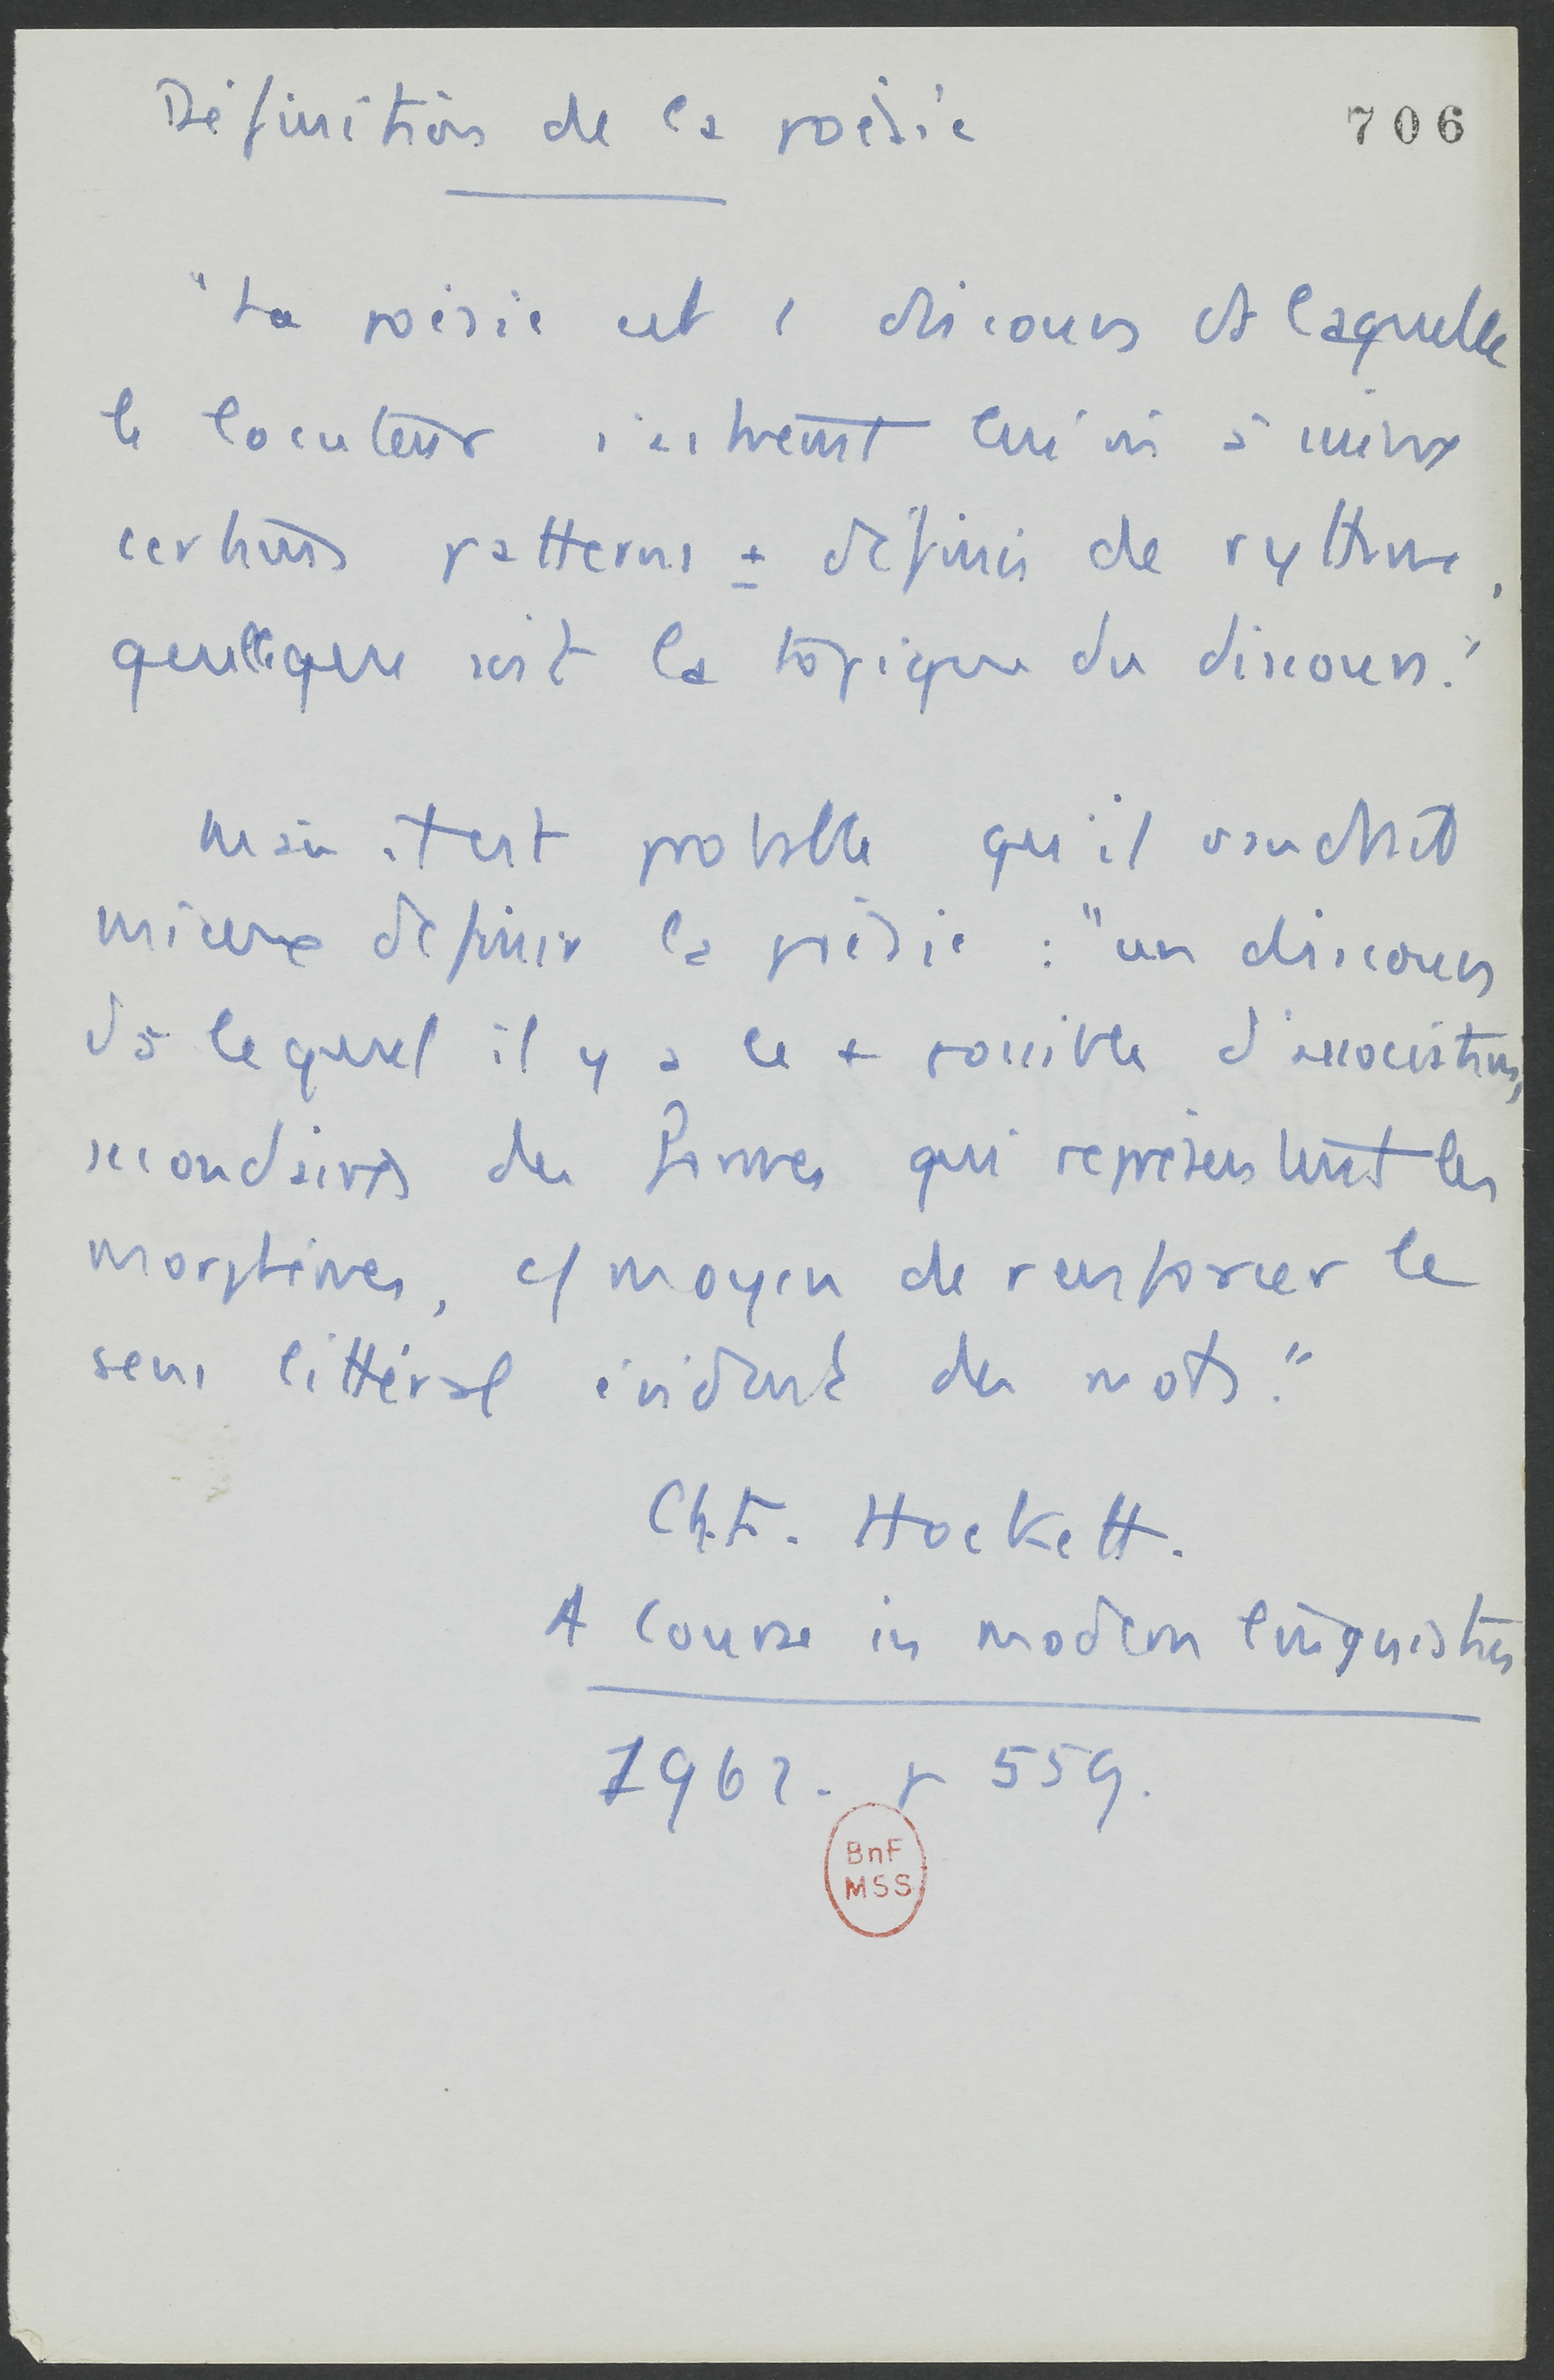 Définition de la poésie
706
"La poésie est 1 discours ds laquelle
le locuteur s'astreint lui-m à suivre
certains patterns ± définis de rythme,
quelleque soit la topique du discours."
Mais il est probable qu'il vaudrait
mieux définir la poésie : "un discours
ds lequel il y a le + possible d'associations
secondaires des formes qui représentent les
morphèmes, c/ moyen de renforcer le
sens littéral évident des mots."
Ch. F. Hockett.
A course in modern linguistics
1962. p 559.
BnF
MSS